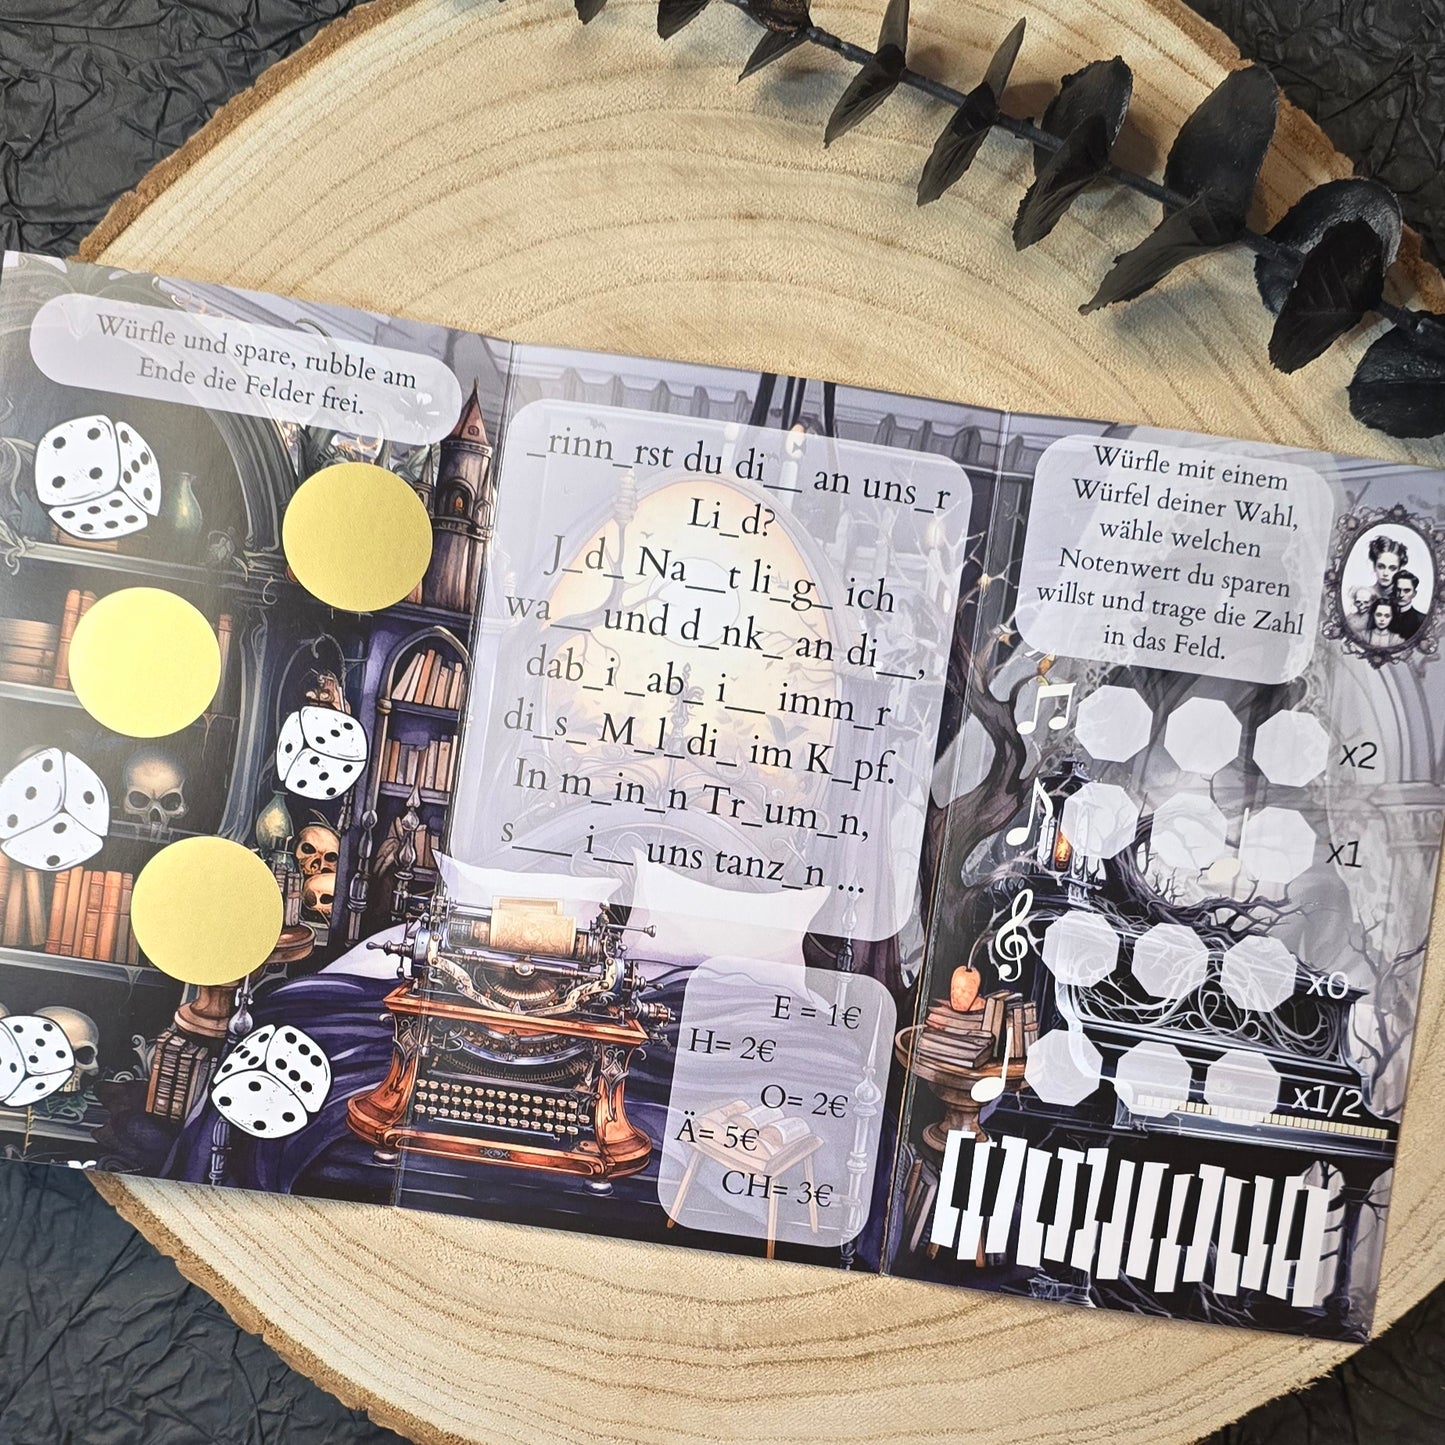 Würfle und spare, rubble am
Ende die Felder frei.
_rinn_rst du di__ an uns_r
Li_d?
J_d_ Na__t li_g_ ich
wa__ und d_nk_ an di__,
dab_i _ab_ i__ imm_r
di_s_ M_l_di_ im K_pf.
In m_in_n Tr_um_n,
s___ i__ uns tanz_n ...
E = 1€
H= 2€
O= 2€
Ä= 5€
CH= 3€
Würfle mit einem
Würfel deiner Wahl,
wähle welchen
Notenwert du sparen
willst und trage die Zahl
in das Feld.
x2
x1
x0
x1/2